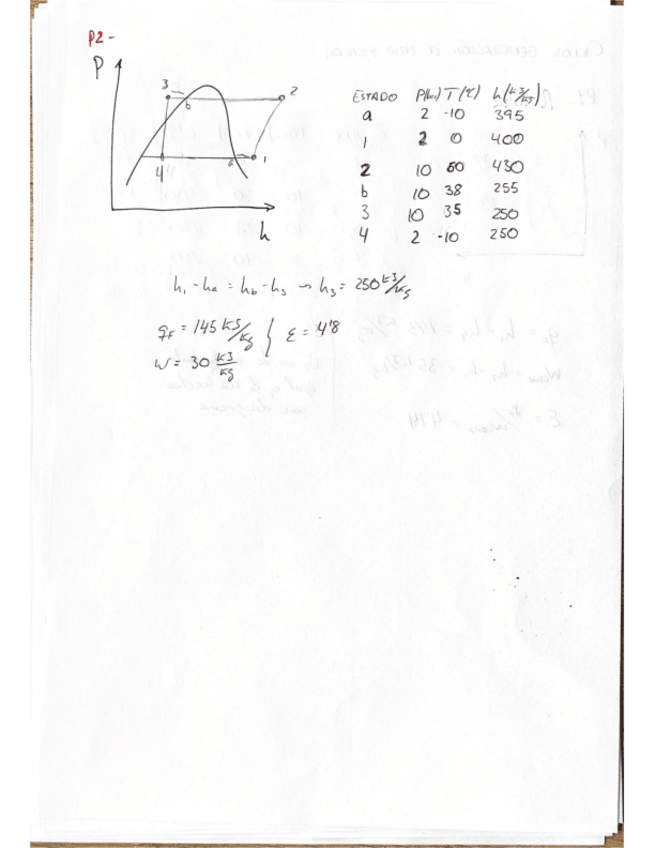 P2-
P
3
2
b
4
a
1
h
ESTADO P(bar) T(ºC) h(kJ/kg)
a 2 -10 395
1 2 0 400
2 10 60 430
b 10 38 255
3 10 35 250
4 2 -10 250
h₁ - hₐ = h_b - h₃ → h₃ = 250 kJ/kg
q_F = 145 kJ/kg } ε = 4'8
W = 30 kJ/kg